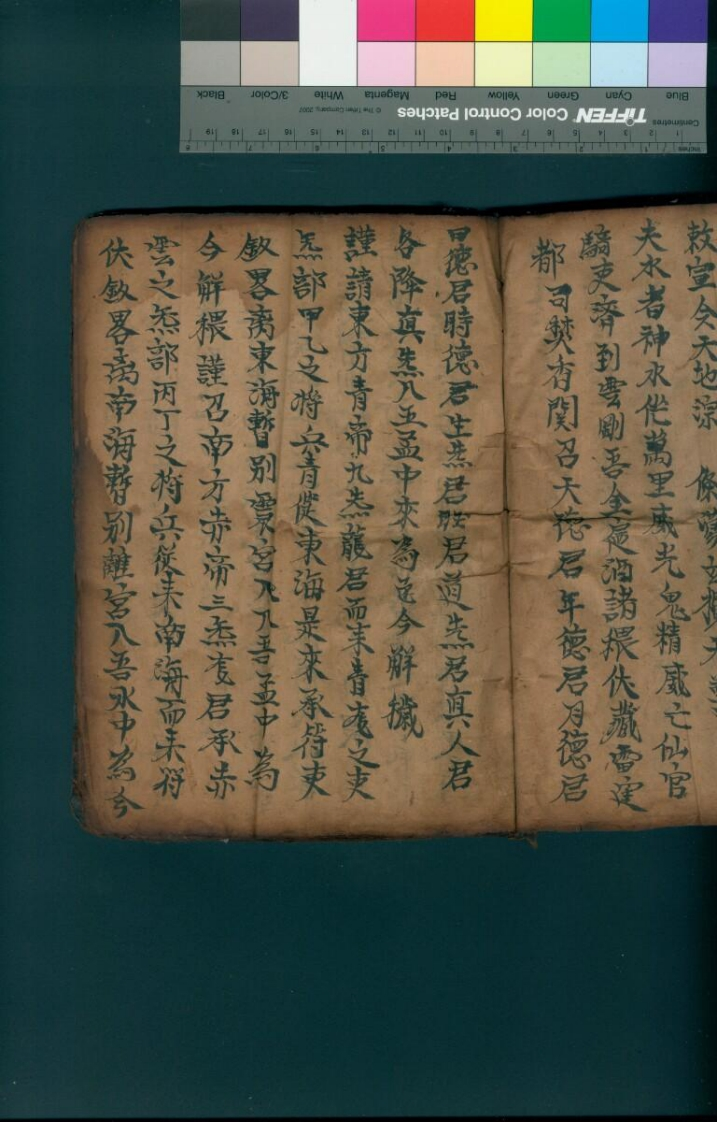 敕宣今天地
夫水者神水佗萬里威光鬼精滅亡仙官
騎吏齊到雲剛吾全 酒諸猥伏藏雷霆
都司焚香関召天德君年德君月德君
日德君時德君生炁君旺君道炁君真人君
各降真炁入五盂中來為 今解穢
謹請東方青帝九炁龍君而来青衣之吏
炁部甲乙之將兵青從東海是來承符吏
欽畧离東海暫别震宫入吾盂中為
今解猥謹召南方赤帝三炁 君承赤
雲之炁部丙丁之將兵從来南海而来符
伏欽畧离南海暫别離宫入吾水中為今
Blue Cyan Green Yellow Red Magenta White 3/Color Black
TIFFEN Color Control Patches © The Tiffen Company, 2007
Centimetres
Inches